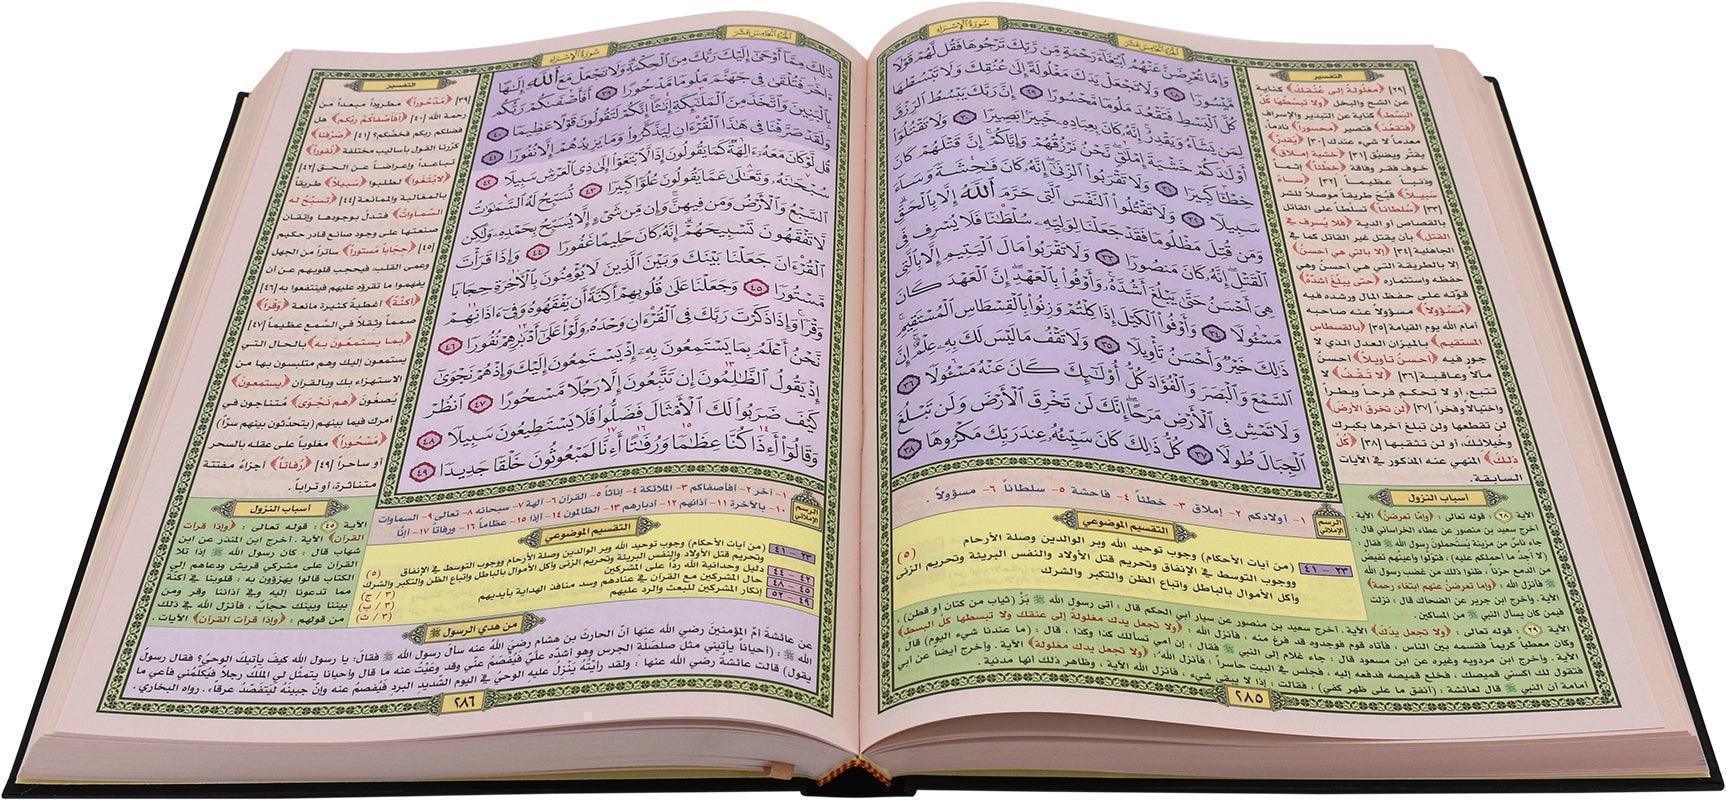 الجزء الخامس عشر
سورة الإسراء
وَإِمَّا تُعْرِضَنَّ عَنْهُمُ ابْتِغَاءَ رَحْمَةٍ مِّن رَّبِّكَ تَرْجُوهَا فَقُل لَّهُمْ قَوْلًا
مَّيْسُورًا ٢٨ وَلَا تَجْعَلْ يَدَكَ مَغْلُولَةً إِلَىٰ عُنُقِكَ وَلَا تَبْسُطْهَا
كُلَّ الْبَسْطِ فَتَقْعُدَ مَلُومًا مَّحْسُورًا ٢٩ إِنَّ رَبَّكَ يَبْسُطُ الرِّزْقَ
لِمَن يَشَاءُ وَيَقْدِرُ إِنَّهُ كَانَ بِعِبَادِهِ خَبِيرًا بَصِيرًا ٣٠ وَلَا تَقْتُلُوا
أَوْلَٰدَكُمْ خَشْيَةَ إِمْلَٰقٍ نَّحْنُ نَرْزُقُهُمْ وَإِيَّاكُمْ إِنَّ قَتْلَهُمْ كَانَ
خِطْئًا كَبِيرًا ٣١ وَلَا تَقْرَبُوا الزِّنَىٰ إِنَّهُ كَانَ فَٰحِشَةً وَسَاءَ
سَبِيلًا ٣٢ وَلَا تَقْتُلُوا النَّفْسَ الَّتِي حَرَّمَ اللَّهُ إِلَّا بِالْحَقِّ
وَمَن قُتِلَ مَظْلُومًا فَقَدْ جَعَلْنَا لِوَلِيِّهِ سُلْطَٰنًا فَلَا يُسْرِف فِّي
الْقَتْلِ إِنَّهُ كَانَ مَنصُورًا ٣٣ وَلَا تَقْرَبُوا مَالَ الْيَتِيمِ إِلَّا بِالَّتِي
هِيَ أَحْسَنُ حَتَّىٰ يَبْلُغَ أَشُدَّهُ وَأَوْفُوا بِالْعَهْدِ إِنَّ الْعَهْدَ كَانَ
مَسْـُٔولًا ٣٤ وَأَوْفُوا الْكَيْلَ إِذَا كِلْتُمْ وَزِنُوا بِالْقِسْطَاسِ الْمُسْتَقِيمِ
ذَٰلِكَ خَيْرٌ وَأَحْسَنُ تَأْوِيلًا ٣٥ وَلَا تَقْفُ مَا لَيْسَ لَكَ بِهِ عِلْمٌ إِنَّ
السَّمْعَ وَالْبَصَرَ وَالْفُؤَادَ كُلُّ أُولَٰئِكَ كَانَ عَنْهُ مَسْـُٔولًا ٣٦
وَلَا تَمْشِ فِي الْأَرْضِ مَرَحًا إِنَّكَ لَن تَخْرِقَ الْأَرْضَ وَلَن تَبْلُغَ
الْجِبَالَ طُولًا ٣٧ كُلُّ ذَٰلِكَ كَانَ سَيِّئُهُ عِندَ رَبِّكَ مَكْرُوهًا ٣٨
التفسير
[٢٩] ﴿مغلولة إلى عنقك﴾ كناية
عن الشح والبخل ﴿ولا تبسطها كلّ
البسط﴾ كناية عن التبذير والإسراف
﴿فتقعد﴾ فتصير ﴿محسوراً﴾ نادماً،
معدماً لا شيء عندك [٣٠] ﴿يقدر﴾
يقتر ويضيّق [٣١] ﴿خشية إملاق﴾
خوف فقر وفاقة ﴿خطئاً﴾ إثماً
وذنباً عظيماً [٣٢] ﴿ساء
سبيلاً﴾ قبُح طريقاً موصلاً للشر
[٣٣] ﴿سلطاناً﴾ تسلطاً على القاتل
بالقصاص أو الدية ﴿فلا يسرف في
القتل﴾ بأن يقتل غير القاتل كما في
الجاهلية [٣٤] ﴿إلا بالتي هي أحسن﴾
إلا بالطريقة التي هي أحسن وهي
حفظه واستثماره ﴿حتى يبلغ أشدّه﴾
قوته على حفظ المال ورشده فيه
﴿مسؤولاً﴾ مسؤولاً عنه صاحبه
أمام الله يوم القيامة [٣٥] ﴿بالقسطاس
المستقيم﴾ بالميزان العدل الذي لا
جور فيه ﴿أحسن تأويلاً﴾ أحسن
مآلا وعاقبة [٣٦] ﴿لا تقفُ﴾ لا
تتبع، أو لا تحكم فرحاً وبطراً
واختيالاً وفخراً [٣٧] ﴿لن تخرق الأرض﴾
لن تقطعها ولن تبلغ آخرها بكبرك
وخُيلائك، أو لن تشقبها [٣٨] ﴿كلّ
ذلك﴾ المنهي عنه المذكور في الآيات
السابقة.
الرسم الإملائي
١- أولادكم ٢- إملاق ٣- خطئاً ٤- فاحشة ٥- سلطاناً ٦- مسؤولاً .
التقسيم الموضوعي
٢٣ - ٤١ (من آيات الأحكام) وجوب توحيد الله وبر الوالدين وصلة الأرحام (٥)
ووجوب التوسط في الإنفاق وتحريم قتل الأولاد والنفس البريئة وتحريم الزنى
وأكل الأموال بالباطل واتباع الظن والتكبر والشرك
أسباب النزول
الآية ٢٨ : قوله تعالى : ﴿وإمّا تعرضنّ﴾ الآية
أخرج سعيد بن منصور عن عطاء الخراساني قال :
جاء ناسٌ من مزينة يستحملون رسول الله ﷺ فقال :
(لا أجدُ ما أحملكم عليه) ، فتولّوا وأعينهم تفيض
من الدمع حزناً ، ظنوا ذلك من غضب رسول الله
ﷺ فأنزل الله : ﴿وإمّا تعرضنّ عنهم ابتغاء رحمة﴾
الآية. وأخرج ابن جرير عن الضحاك قال : نزلت
فيمن كان يسأل النبي ﷺ من المساكين.
الآية ٢٩ : قوله تعالى : ﴿ولا تجعل يدك﴾ الآية. أخرج سعيد بن منصور عن سيار أبي الحكم قال : أتى رسول الله ﷺ بَزٌّ (ثياب من كتان أو قطن) ،
وكان معطياً كريماً فقسمه بين الناس ، فأتاه قوم فوجدوه قد فرغ منه . فأنزل الله : ﴿ولا تجعل يدك مغلولة إلى عنقك ولا تبسطها كلّ البسط﴾
الآية. وأخرج ابن مردويه وغيره عن ابن مسعود قال : جاء غلام إلى النبي ﷺ فقال : إن أمي تسألك كذا وكذا ، قال : (ما عندنا شيء اليوم) قال :
فتقول لك اكسني قميصك ، فخلع قميصه فدفعه إليه ، فجلس في البيت حاسراً ، فأنزل الله : ﴿ولا تجعل يدك مغلولة﴾ الآية. وأخرج أيضاً عن أبي
أمامة أن النبي ﷺ قال لعائشة : (أنفق ما على ظهر كفي) ، فقالت : إذا لا يبقى شيء ، فأنزل الله الآية وظاهر ذلك أنها مدنية
٢٨٥
الجزء الخامس عشر
سورة الإسراء
ذَٰلِكَ مِمَّا أَوْحَىٰ إِلَيْكَ رَبُّكَ مِنَ الْحِكْمَةِ وَلَا تَجْعَلْ مَعَ اللَّهِ إِلَٰهًا
ءَاخَرَ فَتُلْقَىٰ فِي جَهَنَّمَ مَلُومًا مَّدْحُورًا ٣٩ أَفَأَصْفَىٰكُمْ رَبُّكُم
بِالْبَنِينَ وَاتَّخَذَ مِنَ الْمَلَٰئِكَةِ إِنَٰثًا إِنَّكُمْ لَتَقُولُونَ قَوْلًا عَظِيمًا ٤٠
وَلَقَدْ صَرَّفْنَا فِي هَٰذَا الْقُرْءَانِ لِيَذَّكَّرُوا وَمَا يَزِيدُهُمْ إِلَّا نُفُورًا ٤١
قُل لَّوْ كَانَ مَعَهُ ءَالِهَةٌ كَمَا يَقُولُونَ إِذًا لَّابْتَغَوْا إِلَىٰ ذِي الْعَرْشِ سَبِيلًا ٤٢
سُبْحَٰنَهُ وَتَعَٰلَىٰ عَمَّا يَقُولُونَ عُلُوًّا كَبِيرًا ٤٣ تُسَبِّحُ لَهُ السَّمَٰوَٰتُ
السَّبْعُ وَالْأَرْضُ وَمَن فِيهِنَّ وَإِن مِّن شَيْءٍ إِلَّا يُسَبِّحُ بِحَمْدِهِ وَلَٰكِن
لَّا تَفْقَهُونَ تَسْبِيحَهُمْ إِنَّهُ كَانَ حَلِيمًا غَفُورًا ٤٤ وَإِذَا قَرَأْتَ
الْقُرْءَانَ جَعَلْنَا بَيْنَكَ وَبَيْنَ الَّذِينَ لَا يُؤْمِنُونَ بِالْءَاخِرَةِ حِجَابًا
مَّسْتُورًا ٤٥ وَجَعَلْنَا عَلَىٰ قُلُوبِهِمْ أَكِنَّةً أَن يَفْقَهُوهُ وَفِي ءَاذَانِهِمْ
وَقْرًا وَإِذَا ذَكَرْتَ رَبَّكَ فِي الْقُرْءَانِ وَحْدَهُ وَلَّوْا عَلَىٰ أَدْبَٰرِهِمْ نُفُورًا ٤٦
نَّحْنُ أَعْلَمُ بِمَا يَسْتَمِعُونَ بِهِ إِذْ يَسْتَمِعُونَ إِلَيْكَ وَإِذْ هُمْ نَجْوَىٰ
إِذْ يَقُولُ الظَّٰلِمُونَ إِن تَتَّبِعُونَ إِلَّا رَجُلًا مَّسْحُورًا ٤٧ انظُرْ
كَيْفَ ضَرَبُوا لَكَ الْأَمْثَالَ فَضَلُّوا فَلَا يَسْتَطِيعُونَ سَبِيلًا ٤٨
وَقَالُوا أَءِذَا كُنَّا عِظَٰمًا وَرُفَٰتًا أَءِنَّا لَمَبْعُوثُونَ خَلْقًا جَدِيدًا ٤٩
التفسير
[٣٩] ﴿مدحوراً﴾ مطروداً مبعداً من
رحمة الله [٤٠] ﴿أفأصفاكم ربّكم﴾ هل
فضلكم ربكم فخصّكم؟ [٤١] ﴿صرّفنا﴾
كرّرنا القول بأساليب مختلفة ﴿نفوراً﴾
تباعداً وإعراضاً عن الحق [٤٢]
﴿لابتغوا﴾ لطلبوا ﴿سبيلاً﴾ طريقاً
بالمغالبة والممانعة [٤٤] ﴿تسبّح له
السماوات﴾ فتدلّ بوجودها وإتقان
صنعتها على وجود صانع قادر حكيم
[٤٥] ﴿حجاباً مستوراً﴾ ساتراً من الجهل
وعمى القلب، فيحجب قلوبهم عن أن
يفهموا ما تقرؤه عليهم فينتفعوا به [٤٦]
﴿أكنّة﴾ أغطية كثيرة مانعة ﴿وقراً﴾
صمماً وثقلاً في السمع عظيماً [٤٧]
﴿بما يستمعون به﴾ بالحال التي
يستمعون إليك وهم متلبسون بها من
الاستهزاء بك وبالقرآن ﴿يستمعون﴾
يُصغون ﴿هم نجوى﴾ متناجون في
أمرك فيما بينهم (يتحدثون بينهم سرّاً)
﴿مسحوراً﴾ مغلوباً على عقله بالسحر
أو ساحراً [٤٩] ﴿رفاتاً﴾ أجزاءً مفتتة
متناثرة، أو تراباً.
الرسم الإملائي
١- آخر ٢- أفأصفاكم ٣- الملائكة ٤- إناثاً ٥- القرآن ٦- آلهة ٧- سبحانه ٨- تعالى ٩- السماوات
١٠- بالآخرة ١١- آذانهم ١٢- أدبارهم ١٣- الظالمون ١٤- أإذا ١٥- عظاماً ١٦- ورفاتاً ١٧- أإنّا
التقسيم الموضوعي
٢٣ - ٤١ (من آيات الأحكام) وجوب توحيد الله وبر الوالدين وصلة الأرحام ووجوب التوسط في الإنفاق
وتحريم قتل الأولاد والنفس البريئة وتحريم الزنى وأكل الأموال بالباطل واتباع الظن والتكبر والشرك (٥)
٤٢ - ٤٤ دليل وحدانية الله ردّاً على المشركين
٤٥ - ٤٨ حال المشركين مع القرآن في عنادهم وسد منافذ الهداية بأيديهم
٤٩ - ٥٢ إنكار المشركين للبعث والرد عليهم
أسباب النزول
الآية ٤٥ : قوله تعالى : ﴿وإذا قرأت
القرآن﴾ الآية. أخرج ابن المنذر عن ابن
شهاب قال : كان رسول الله ﷺ إذا تلا
القرآن على مشركي قريش ودعاهم إلى
الكتاب قالوا يهزؤون به : قلوبنا في أكنّة
مما تدعونا إليه وفي آذاننا وقر ومن
بيننا وبينك حجاب ، فأنزل الله في ذلك
من قولهم : ﴿وإذا قرأت القرآن﴾ الآيات.
من هدي الرسول ﷺ
عن عائشة أمّ المؤمنين رضي الله عنها أنّ الحارث بن هشام رضي الله عنه سأل رسول الله ﷺ فقال: يا رسول الله كيف يأتيك الوحي؟ فقال رسول
الله ﷺ : (أحياناً يأتيني مثل صلصلة الجرس وهو أشدّه عليّ فيُفصَم عنّي وقد وعيْتُ عنه ما قال وأحيانا يتمثل لي الملَك رجلاً فيكلمني فأعي ما
يقول) قالت عائشة رضي الله عنها : ولقد رأيته ينزل عليه الوحي في اليوم الشديد البرد فيفصم عنه وإنّ جبينَه ليَتفصّد عرقاً. رواه البخاري.
٢٨٦